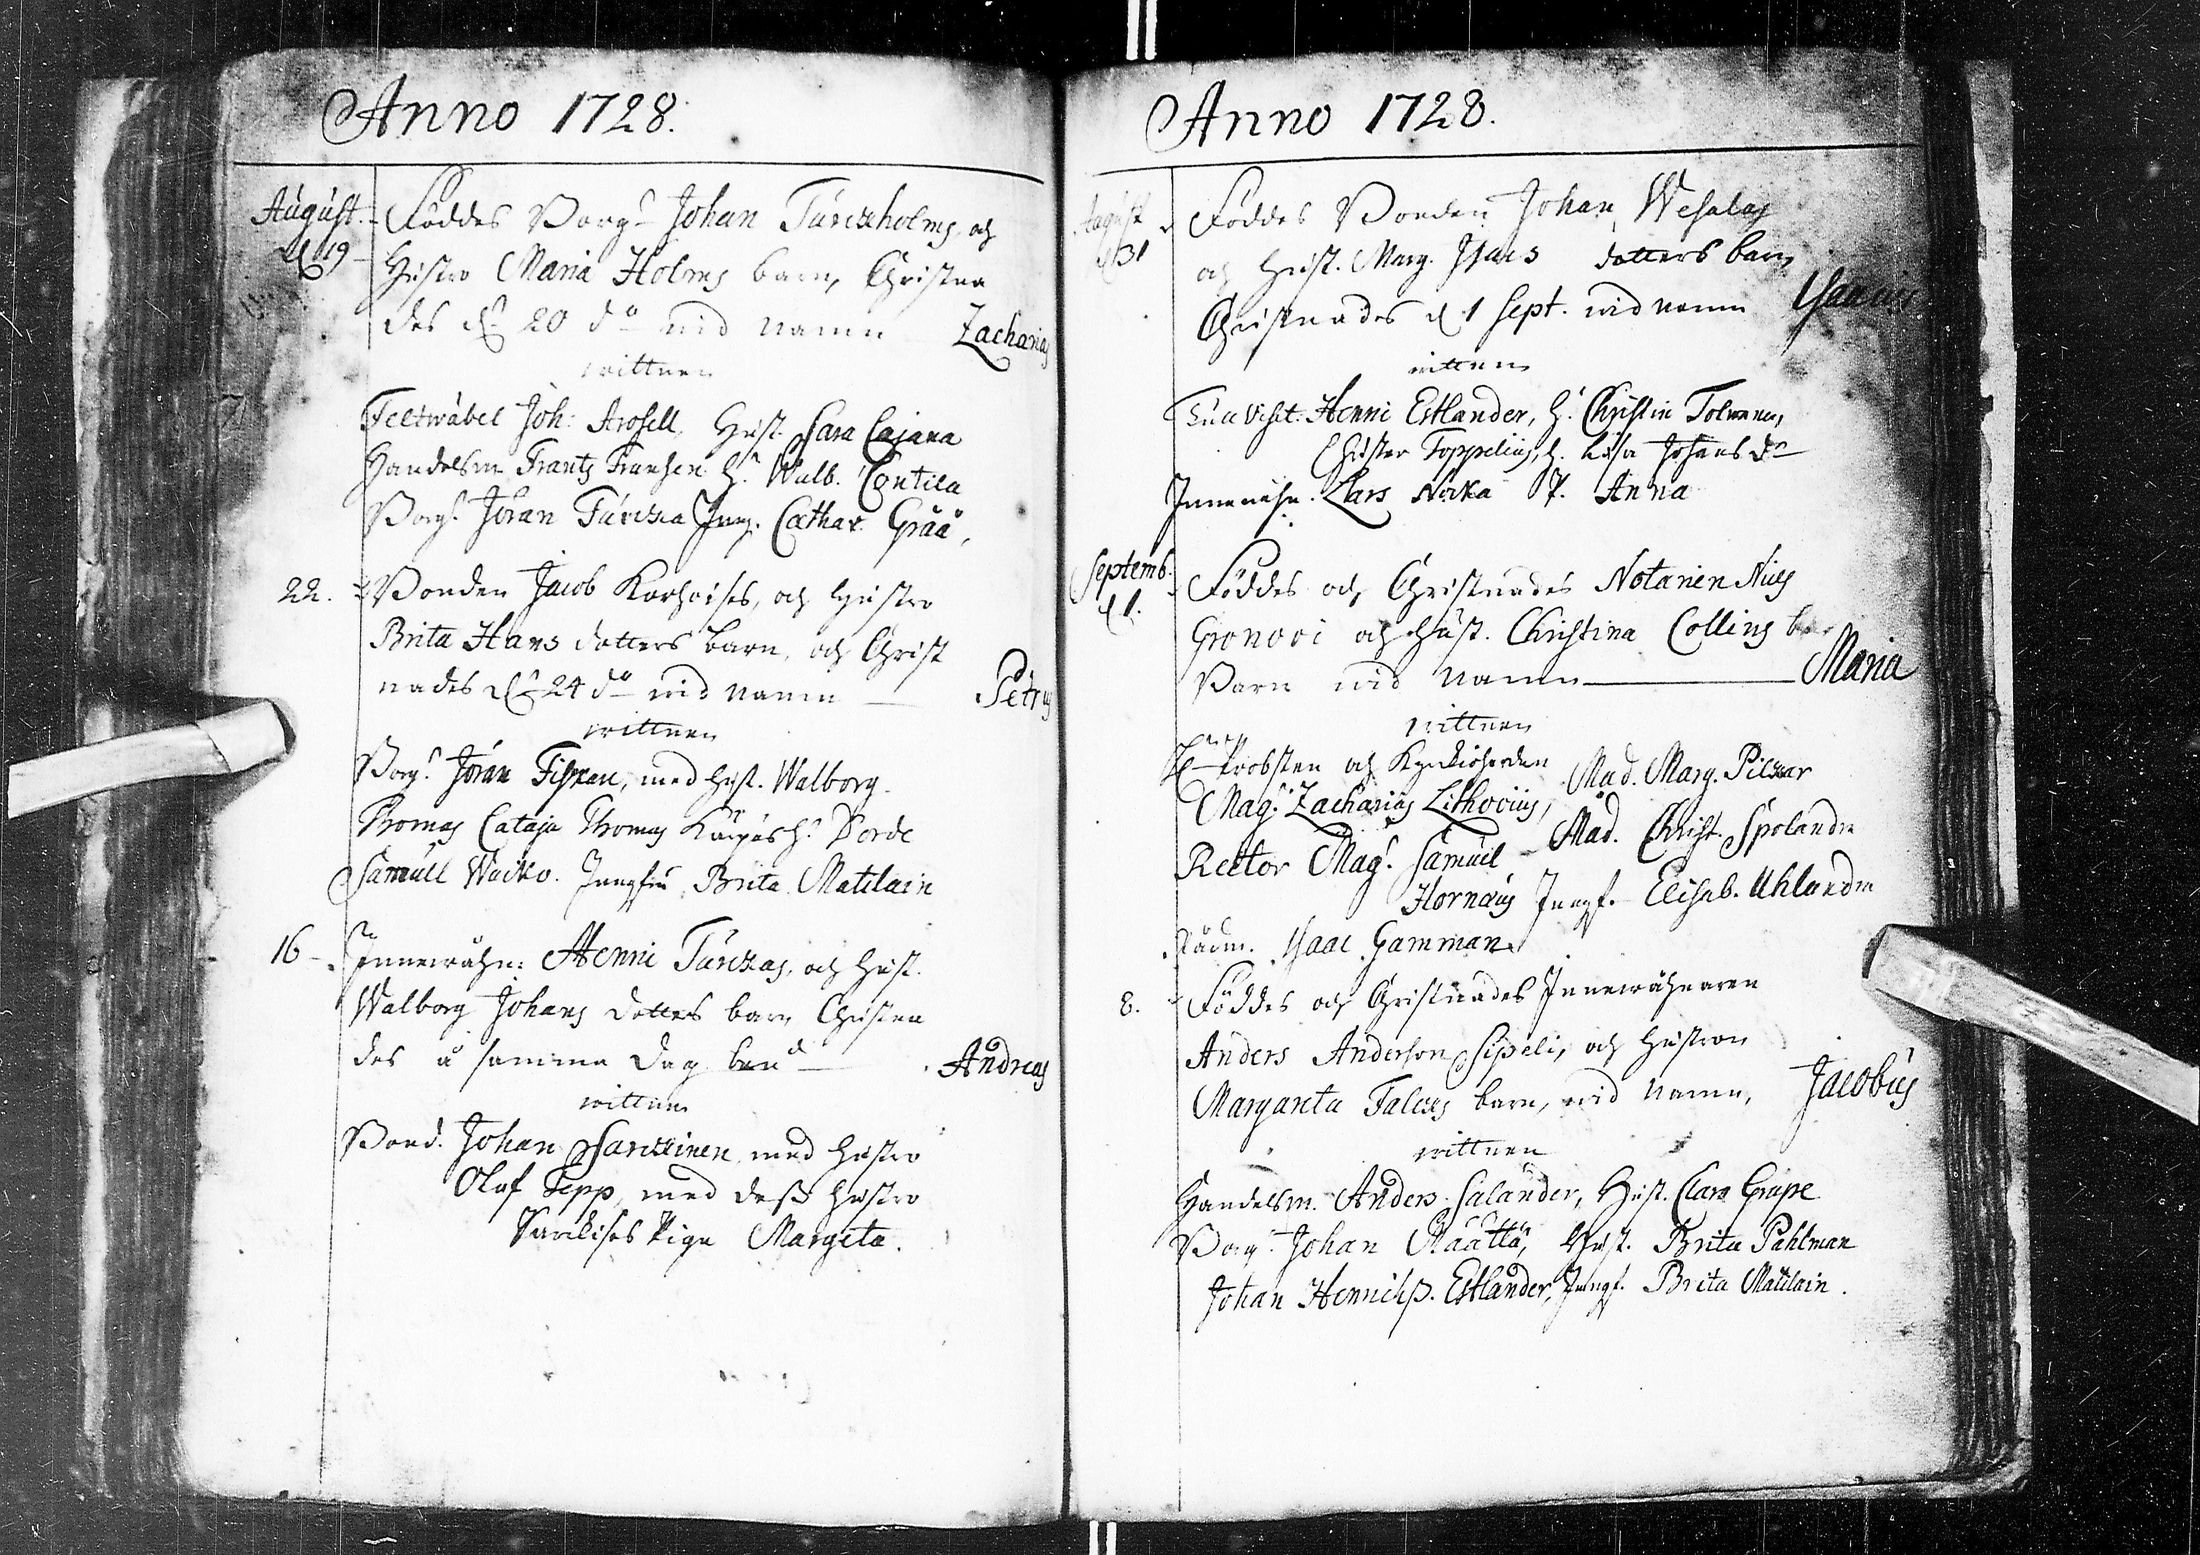 Anno 1728.
August. Föddes Borg. Johan Turckholms, och
d. 19 Hustro Maria Holms barn, Christna
des d. 20 do wid namn Zacharias
wittnen
Feltwäbel Joh: Arosell, Hust. Sara Cajana
Handelsm Frantz Fransen h. Walb. Contila
Borg. Jöran Turcka Jung. Cathar. Gråå,
22. Bonden Jacob Korhoises, och Hustro
Brita Hans dotters barn, och Christ
nades d. 24 do wid namn Petrus
wittnen
Borg. Jöran med Hust. Walborg
Thomas Cataja Thomas h.
Samuel Jungfru Brita Matilain
16 Innewåhn: Henni Turckas, och Hust.
Walborg Johans dotters barn Christna
des å samma dag Andreas
wittnen
Bond. Johan med Hustro
Oluf Sepp, med dess Hustro
piga Margeta.
Anno 1728.
August Föddes Bonden Johan Wesalas
d. 31 och Hust. Marg. Isacs dotters barn
Christnades d. 1 Sept. wid namn Isaacus
wittnen
Henni Estlander, h. Christin Tolonen,
Christer Toppelius, h. Lisa Johans dr
Innewåhn. Lars Nocka P. Anna
Septemb. Föddes och Christnades Notarien Nils
d. 1. Gronovi och Hust. Christina Collins
Barn wid namn Maria
wittnen
H. Probsten och Kyrckioherden Mad. Marg. Pilcar
Mag. Zacharias Lithovius,
Rector Mag. Samuel Mad. Christ. Spolandra
Hornæus Jungf. Elisab. Uhlandra
Rådm. Isaac Gamman
8. Föddes och Christnades Innewåhnaren
Anders Anderson Sipeli, och Hustron
Margareta Falcks barn, wid namn, Jacobus
wittnen
Handelsm. Anders Salander, Hust. Clara Grape
Borg. Johan Määttä, Hust. Brita Pahlman
Johan Henrichs. Estlander, Jungf. Brita Matilain.